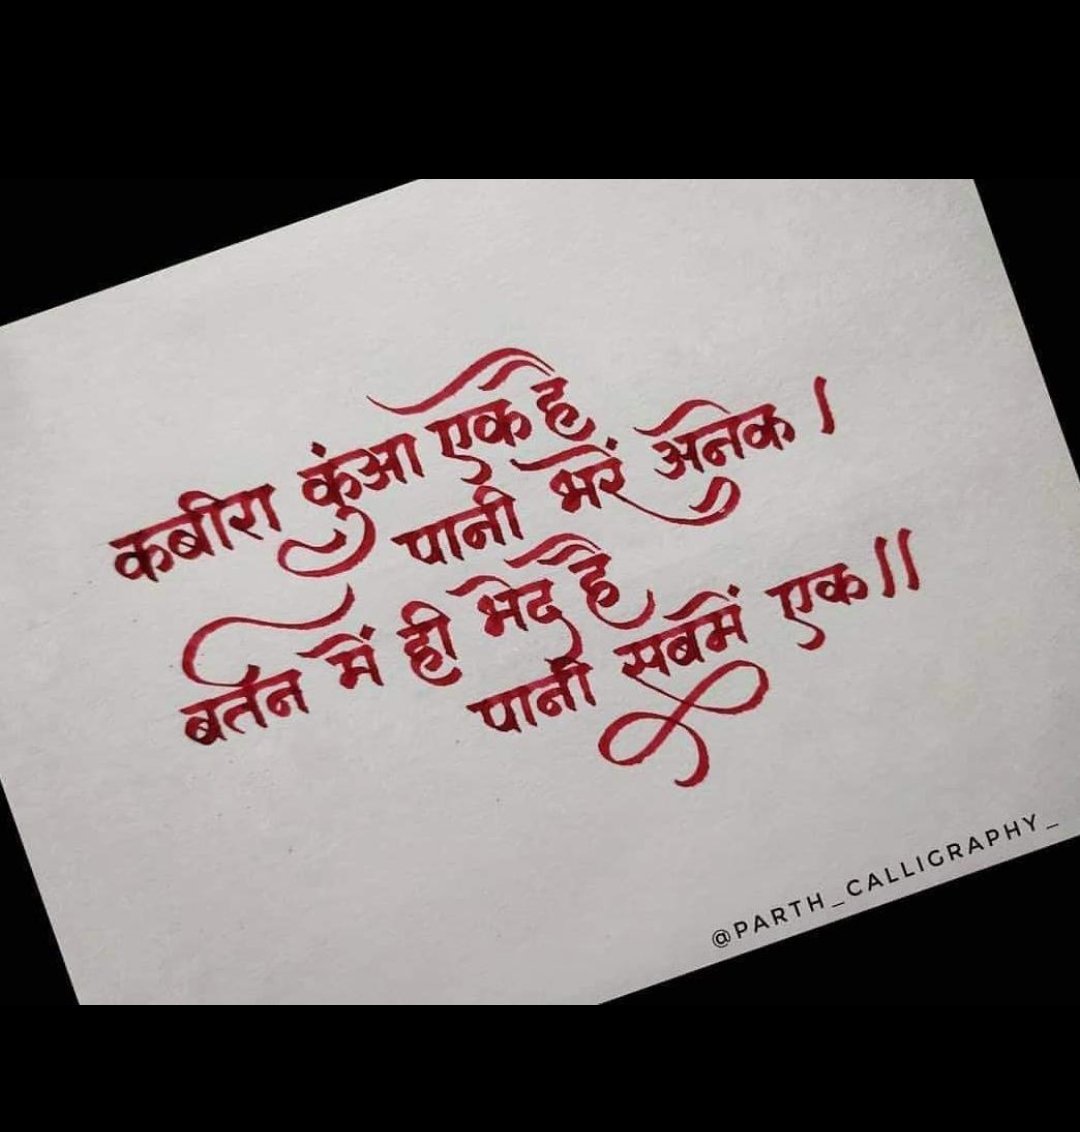 कबीरा कुंआ एक है
पानी भरें अनेक ।
बर्तन में ही भेद है
पानी सबमें एक ॥
@PARTH_CALLIGRAPHY_